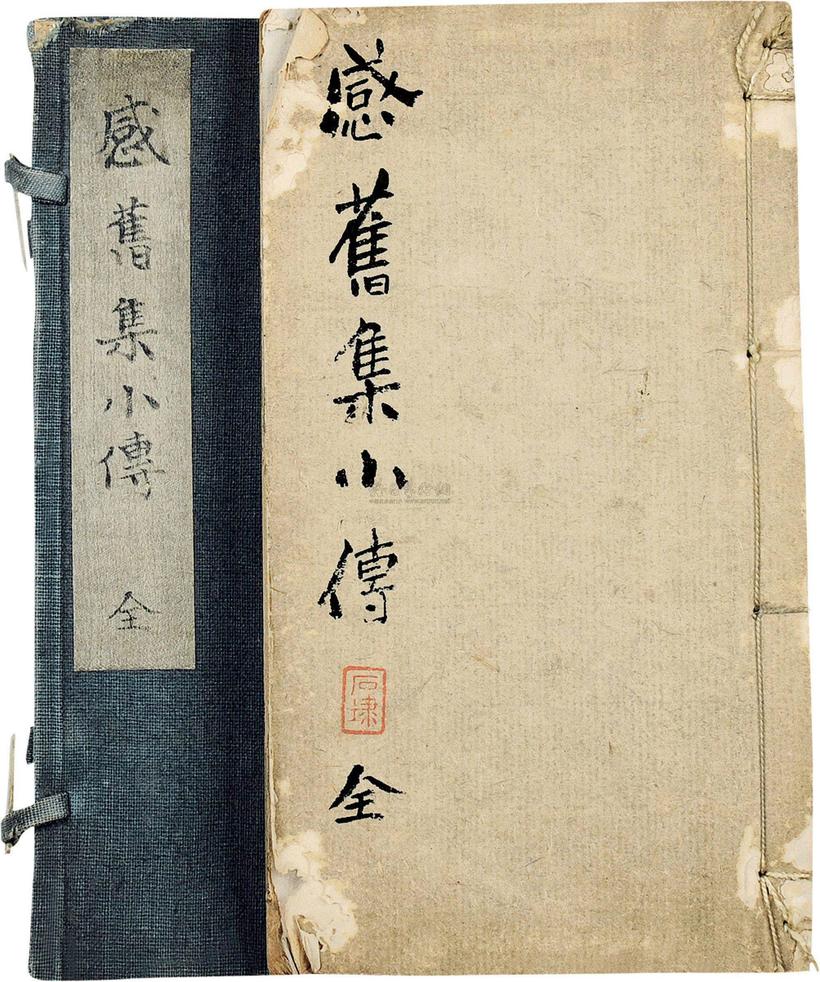 感舊集小傳
全
感舊集小傳
全